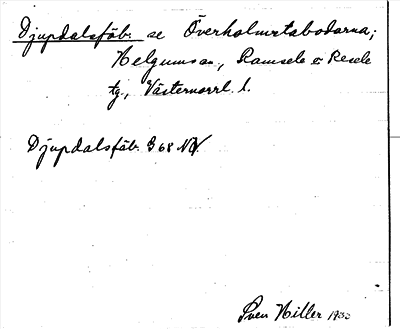 Djupdalsfäb. se Överholmstabodarna;
Helgums sn., Ramsele o Resele
tg., Västernorrl. l.
Djupdalsfäb. G 68 NV
Sven Hiller 1933